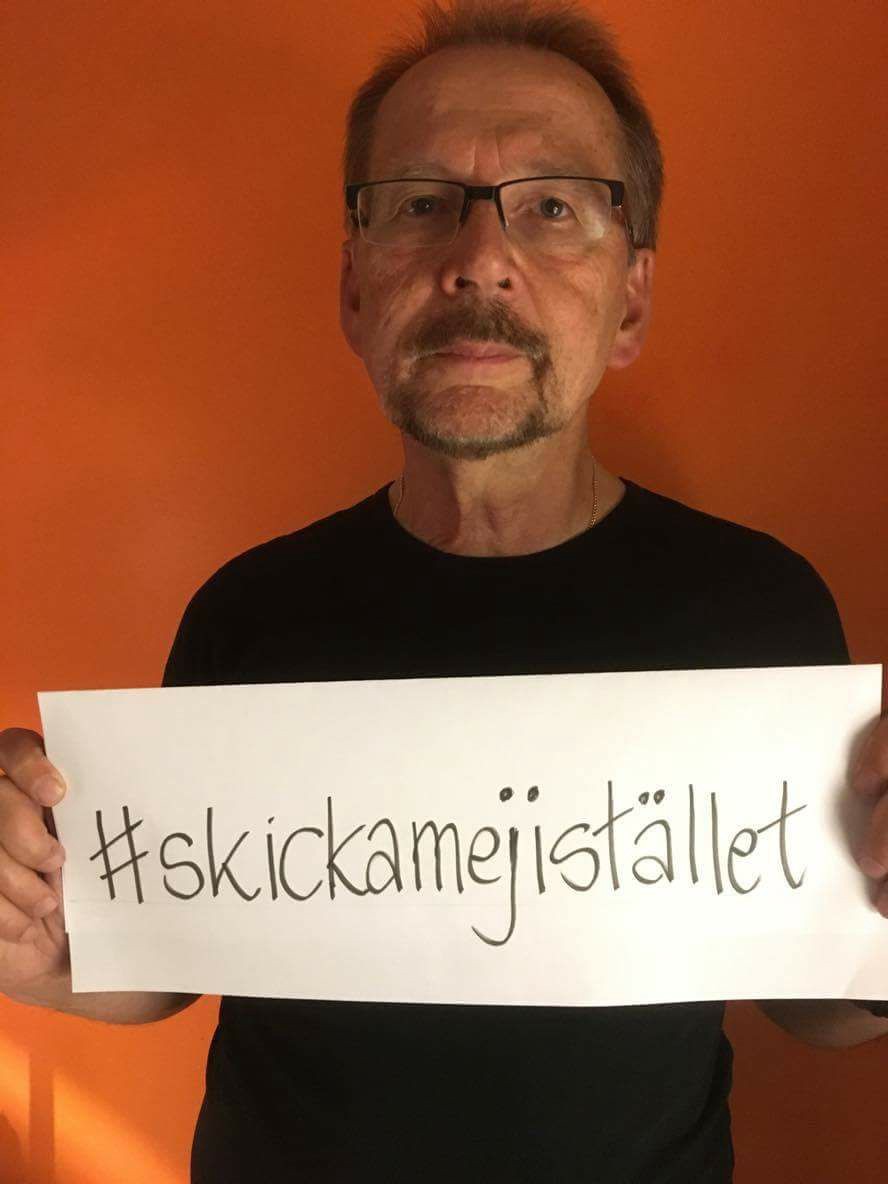 #skickamejistället